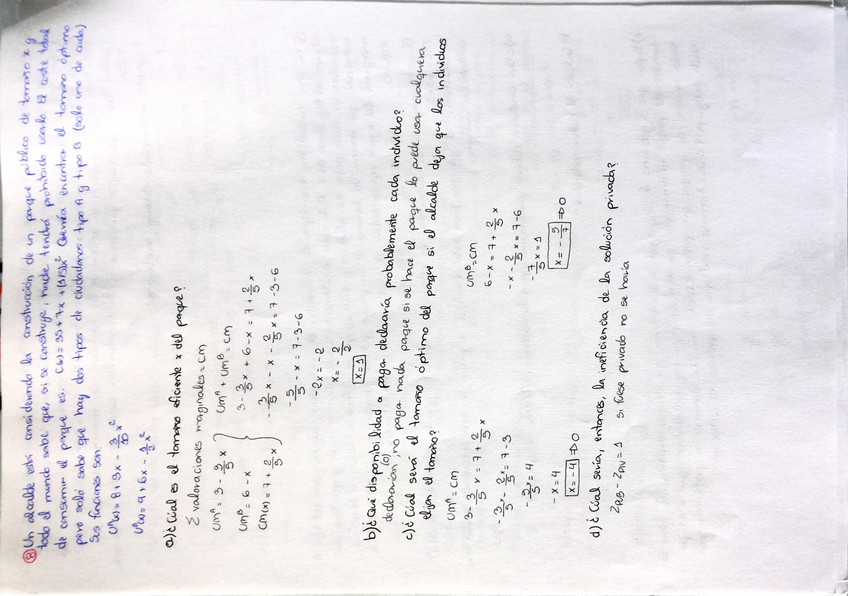 ⑧ Un alcalde está considerando la construcción de un parque público de tamaño x y
todo el mundo sabe que, si se construye, nadie tendrá prohibido usarlo. El coste total
de construir el parque es C(x) = 35+7x+(1/5)x². Querría encontrar el tamaño óptimo
pero solo sabe que hay dos tipos de ciudadanos: tipo A y tipo B (solo uno de cada)
Sus funciones son:
Uᴬ(x) = 8+3x-3/10x²
Uᴮ(x) = 9+6x-1/2x²
a) ¿Cuál es el tamaño eficiente x del parque?
Σ valoraciones marginales = CM
UMᴬ = 3-3/5x
UMᴮ = 6-x
CM(x) = 7+2/5x
UMᴬ+UMᴮ=CM
3-3/5x+6-x=7+2/5x
-3/5x-x-2/5x=7-3-6
-5/5-x=7-3-6
-2x=-2
x=-2/2
x=1
b) ¿Qué disponibilidad a pagar declararía probablemente cada individuo?
declararían (0) no pagar nada porque si se hace el parque lo puede usar cualquiera
c) ¿Cuál será el tamaño óptimo del parque si el alcalde deja que los individuos
elijan el tamaño?
UMᴬ=CM
3-3/5x=7+2/5x
-3/5x-2/5x=7-3
-5/5=4
-x=4
x=-4 ⇒0
UMᴮ=CM
6-x=7+2/5x
-x-2/5x=7-6
-7/5x=1
x=-5/7 ⇒0
d) ¿Cuál sería, entonces, la ineficiencia de la solución privada?
ZPúB-ZPRIV=1 si fuese privado no se haría